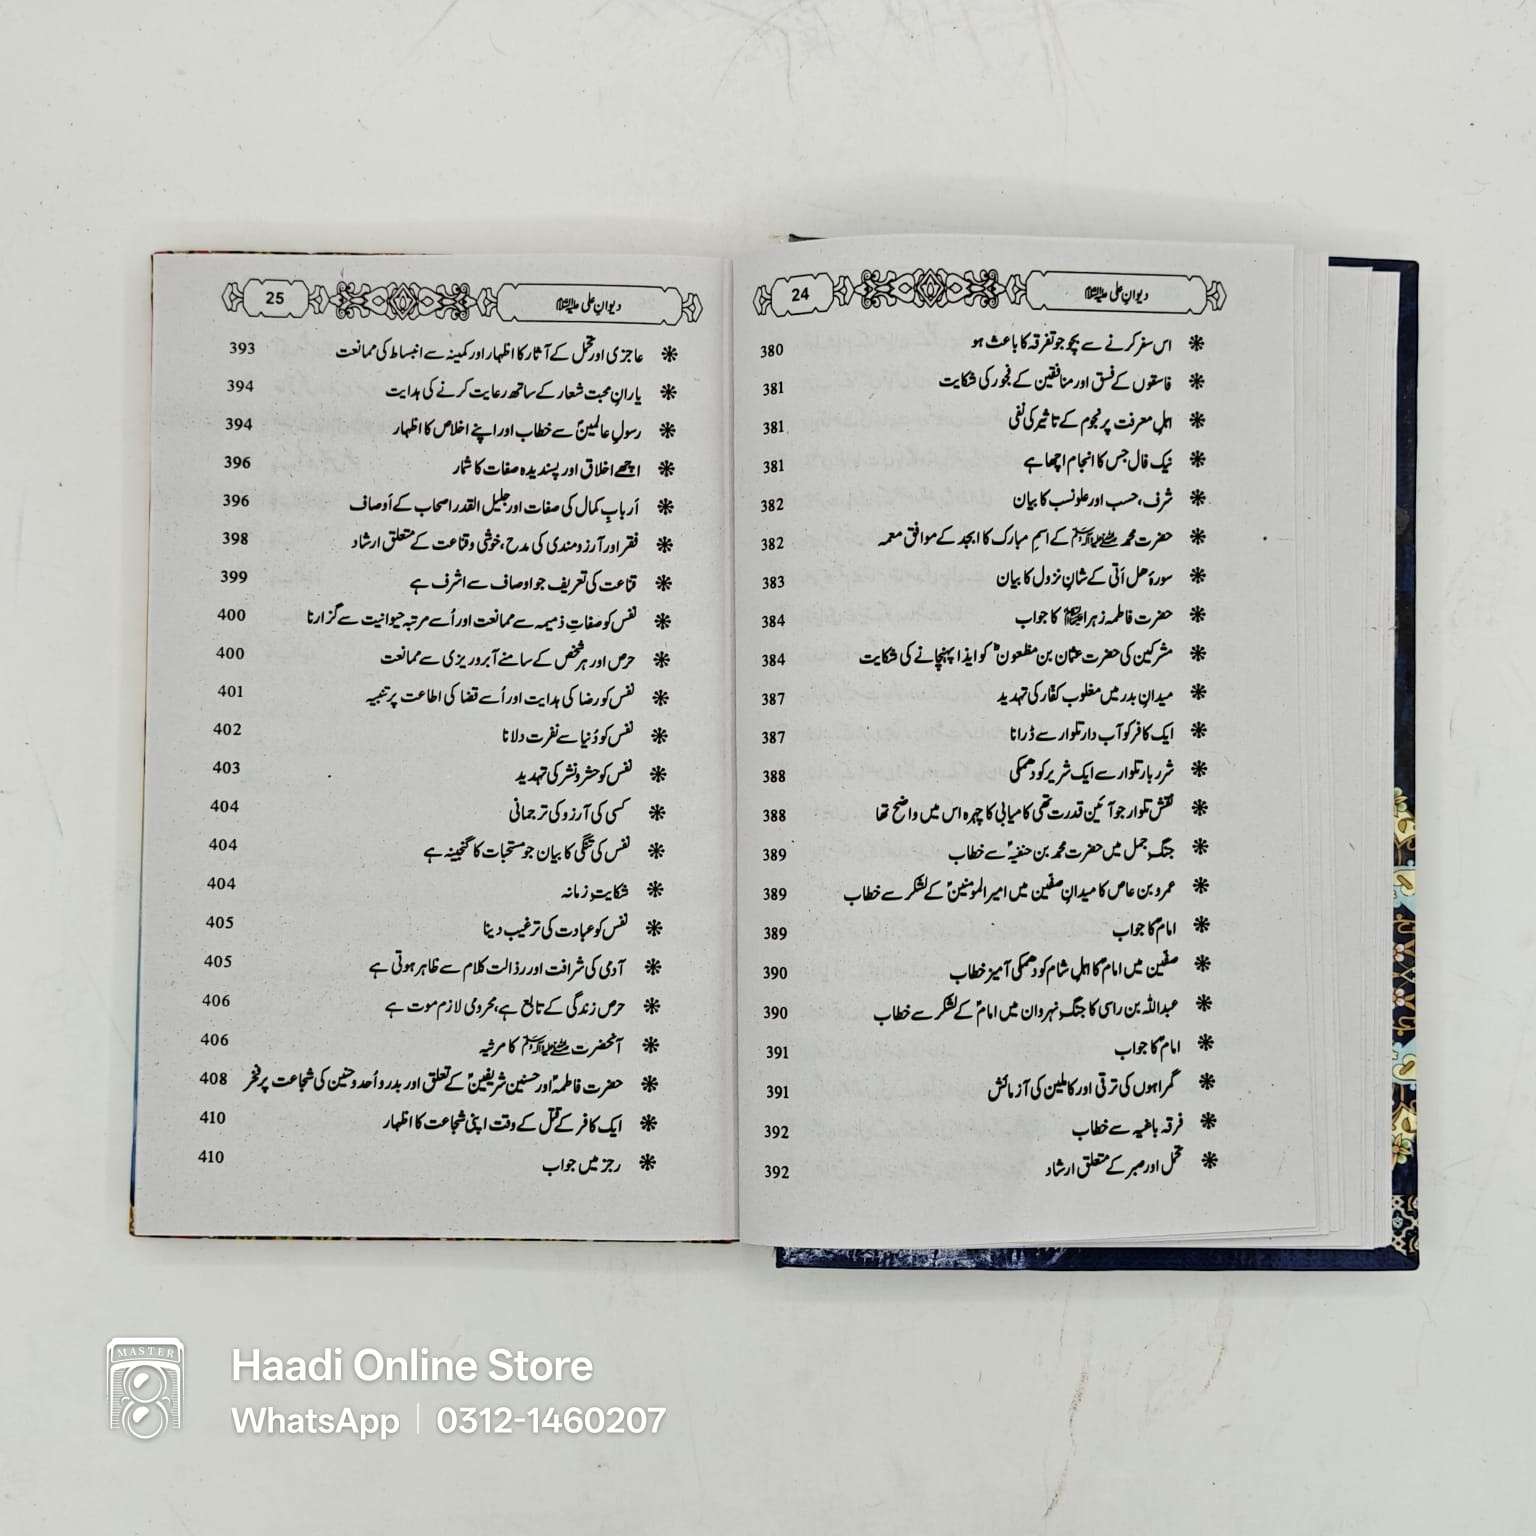 24
دیوانِ علی علیہ السلام
اس سفر کرنے سے بچو جو تفرقہ کا باعث ہو 380
فاسقوں کے فسق اور منافقین کے فجور کی شکایت 381
اہلِ معرفت پر نجوم کے تاثیر کی نفی 381
نیک فال جس کا انجام اچھا ہے 381
شرف، حسب اور علو نسب کا بیان 382
حضرت محمد ﷺ کے اسمِ مبارک کا ابجد کے موافق معمہ 382
سورۂ ھل اَتی کے شانِ نزول کا بیان 383
حضرت فاطمہ زہرا کا جواب 384
مشرکین کی حضرت عثمان بن مظعونؓ کو ایذا پہنچانے کی شکایت 384
میدانِ بدر میں مغلوب کفّار کی تہدید 387
ایک کافر کو آب دار تلوار سے ڈرانا 387
شرر بار تلوار سے ایک شریر کو دھمکی 388
نقش تلوار جو آئین قدرت تھی کامیابی کا چہرہ اس میں واضح تھا 388
جنگِ جمل میں حضرت محمد بن حنفیہؒ سے خطاب 389
عمرو بن عاص کا میدانِ صفین میں امیر المومنینؑ کے لشکر سے خطاب 389
امامؑ کا جواب 389
صفین میں امامؑ کا اہلِ شام کو دھمکی آمیز خطاب 390
عبداللہ بن راسی کا جنگِ نہروان میں امامؑ کے لشکر سے خطاب 390
امامؑ کا جواب 391
گمراہوں کی ترقی اور کاملین کی آزمائش 391
فرقہ باغیہ سے خطاب 392
تحمل اور صبر کے متعلق ارشاد 392
25
دیوانِ علی علیہ السلام
عاجزی اور تحمل کے آثار کا اظہار اور کمینہ سے انبساط کی ممانعت 393
یارانِ محبت شعار کے ساتھ رعایت کرنے کی ہدایت 394
رسولِ عالمینؐ سے خطاب اور اپنے اخلاص کا اظہار 394
اچھے اخلاق اور پسندیدہ صفات کا شمار 396
اَربابِ کمال کی صفات اور جلیل القدر اصحاب کے اَوصاف 396
فقر اور آرزو مندی کی مدح، خوشی و قناعت کے متعلق ارشاد 398
قناعت کی تعریف جو اوصاف سے اشرف ہے 399
نفس کو صفاتِ ذمیمہ سے ممانعت اور اُسے مرتبہ حیوانیت سے گزارنا 400
حرص اور ہر شخص کے سامنے آبرو ریزی سے ممانعت 400
نفس کو رضا کی ہدایت اور اُسے قضا کی اطاعت پر تنبیہ 401
نفس کو دُنیا سے نفرت دلانا 402
نفس کو حشر و نشر کی تہدید 403
کسی کی آرزو کی ترجمانی 404
نفس کی تنگی کا بیان جو مستحبات کا گنجینہ ہے 404
شکایتِ زمانہ 404
نفس کو عبادت کی ترغیب دینا 405
آدمی کی شرافت اور رذالت کلام سے ظاہر ہوتی ہے 405
حرص زندگی کے تابع ہے، محرومی لازم موت ہے 406
آنحضرت ﷺ کا مرثیہ 406
حضرت فاطمہؑ اور حسنین شریفینؑ کے تعلق اور بدر و اُحد و حنین کی شجاعت پر فخر 408
ایک کافر کے قتل کے وقت اپنی شجاعت کا اظہار 410
رجز میں جواب 410
MASTER
Haadi Online Store
WhatsApp | 0312-1460207